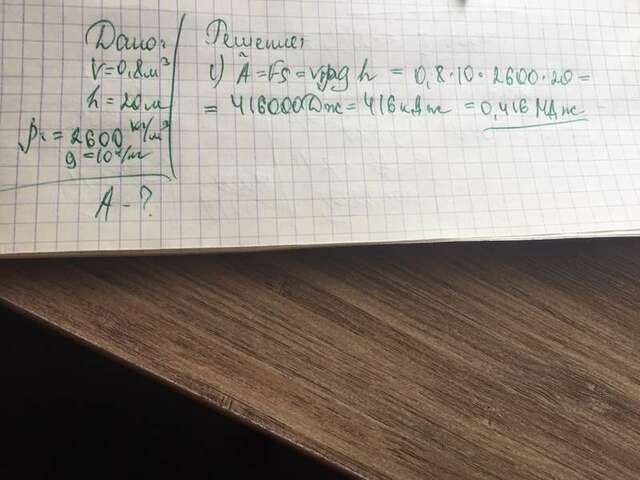 Дано:
V=0,8м³
h = 20м
ρ = 2600 кг/м³
g = 10
A - ?
Решение:
A = FS = Vρg h = 0,8·10·2600·20 =
= 416000 Дж = 416 кДж = 0,416 МДж